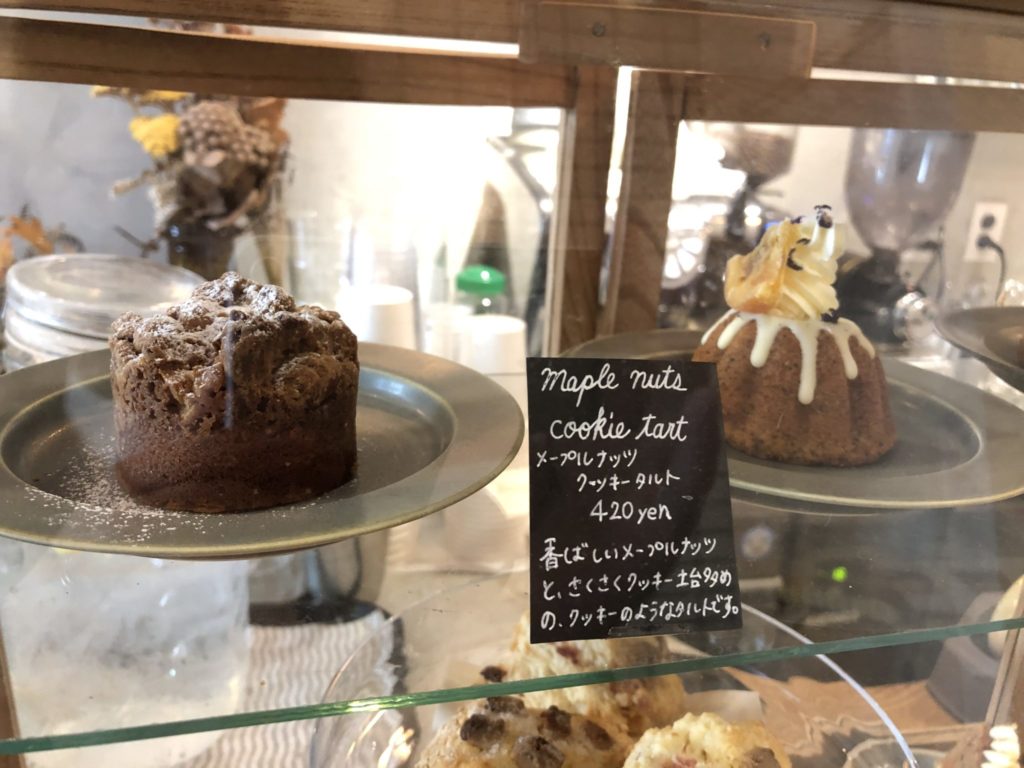 maple nuts
cookie tart
メープルナッツ
クッキータルト
420yen
香ばしいメープルナッツ
と、さくさくクッキー土台多め
の、クッキーのようなタルトです。